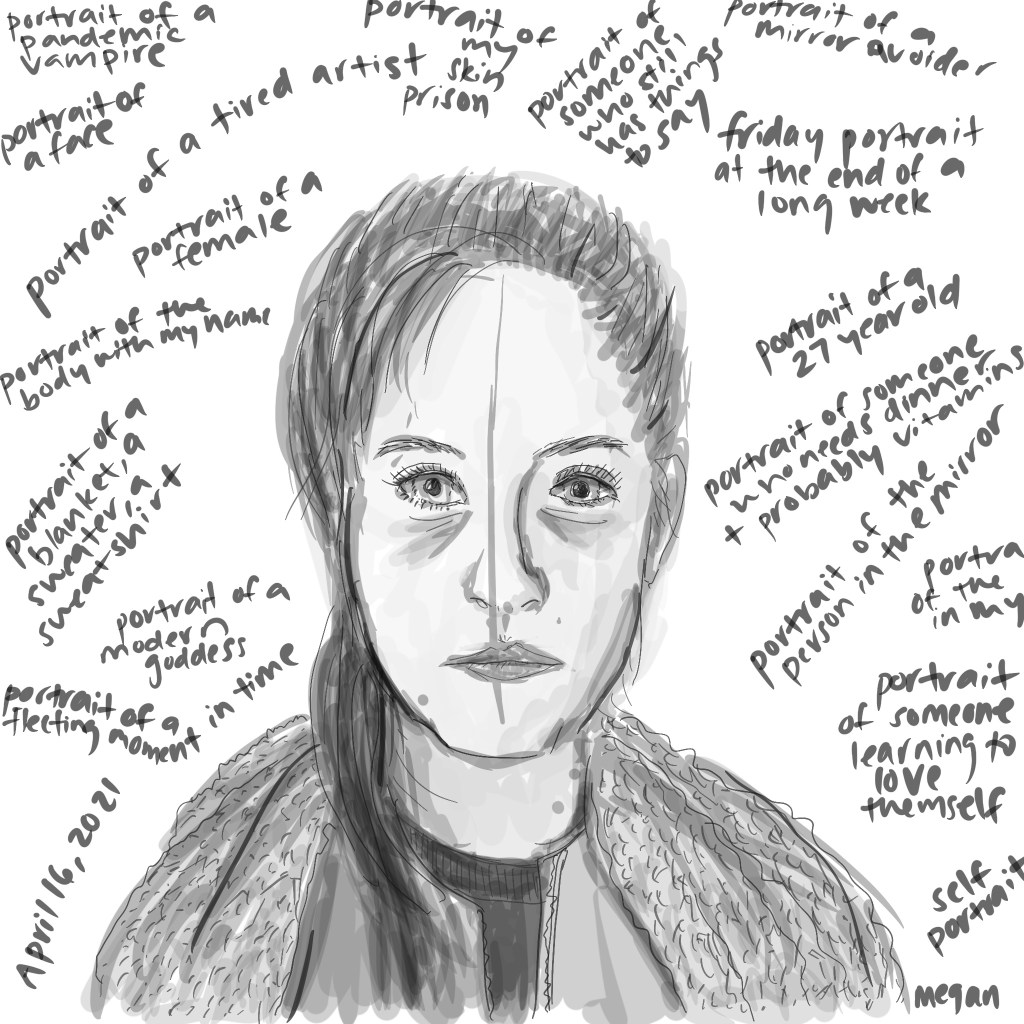 portrait of a
pandemic
vampire
portrait of
a face
portrait of a tired artist
portrait of
my
skin
prison
portrait of
someone
who still
has things
to say
portrait of a
mirror avoider
friday portrait
at the end of a
long week
portrait of a
female
portrait of the
body with my name
portrait of a
blanket, a
sweater, a
sweatshirt
portrait of a
modern
goddess
portrait of a
fleeting moment in time
April 16, 2021
portrait of a
27 year old
portrait of someone
who needs dinner
+ probably vitamins
portrait of the
person in the mirror
portra
of the
in my
portrait
of someone
learning to
love
themself
self
portrait
megan